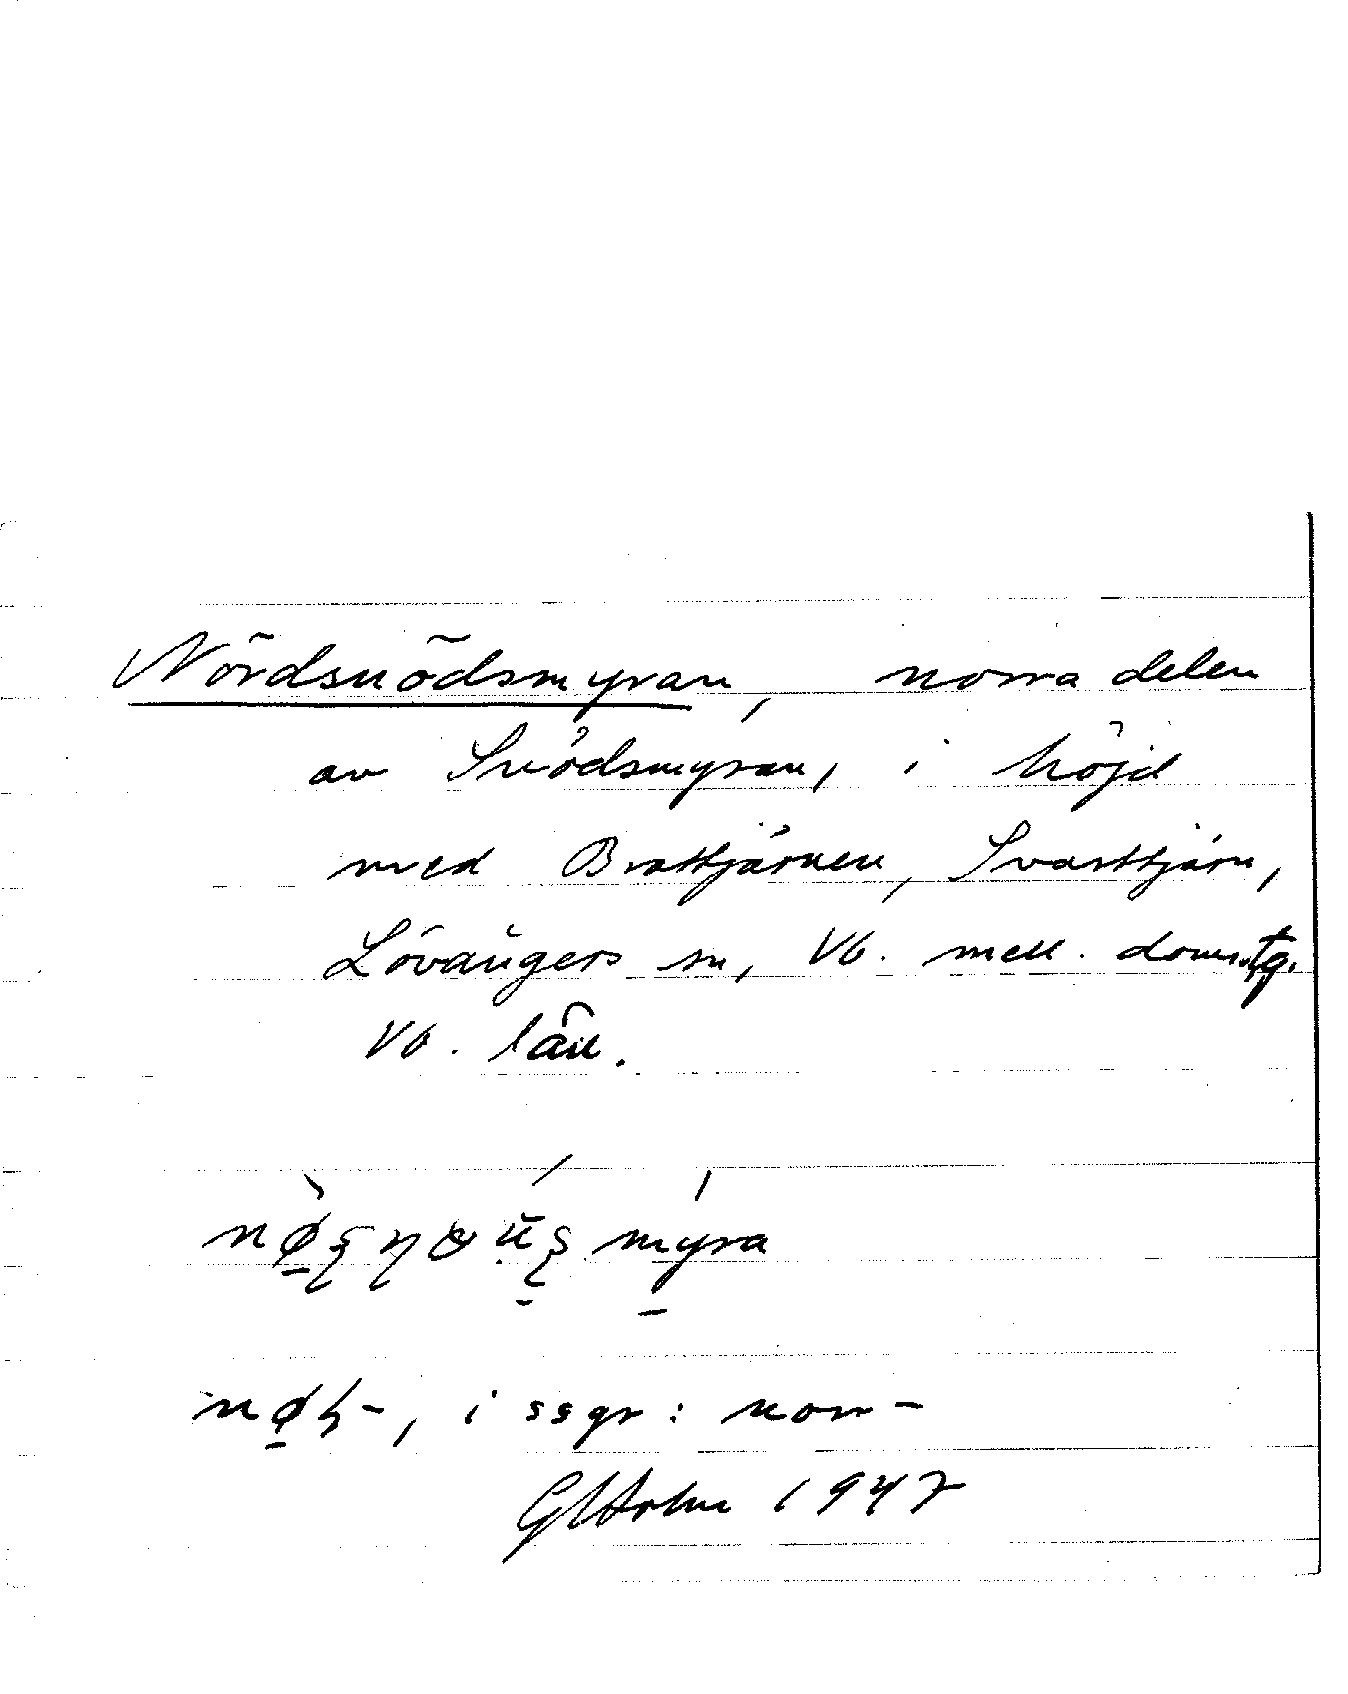 Nördsnödsmyran, norra delen
av Snödsmyran, i höjd
med Brattjärnen, Svarttjärn,
Lövångers sn, Vb. mell. doms.tg.
Vb. län.
myra
i ssgr: norr-
GHolm 1947